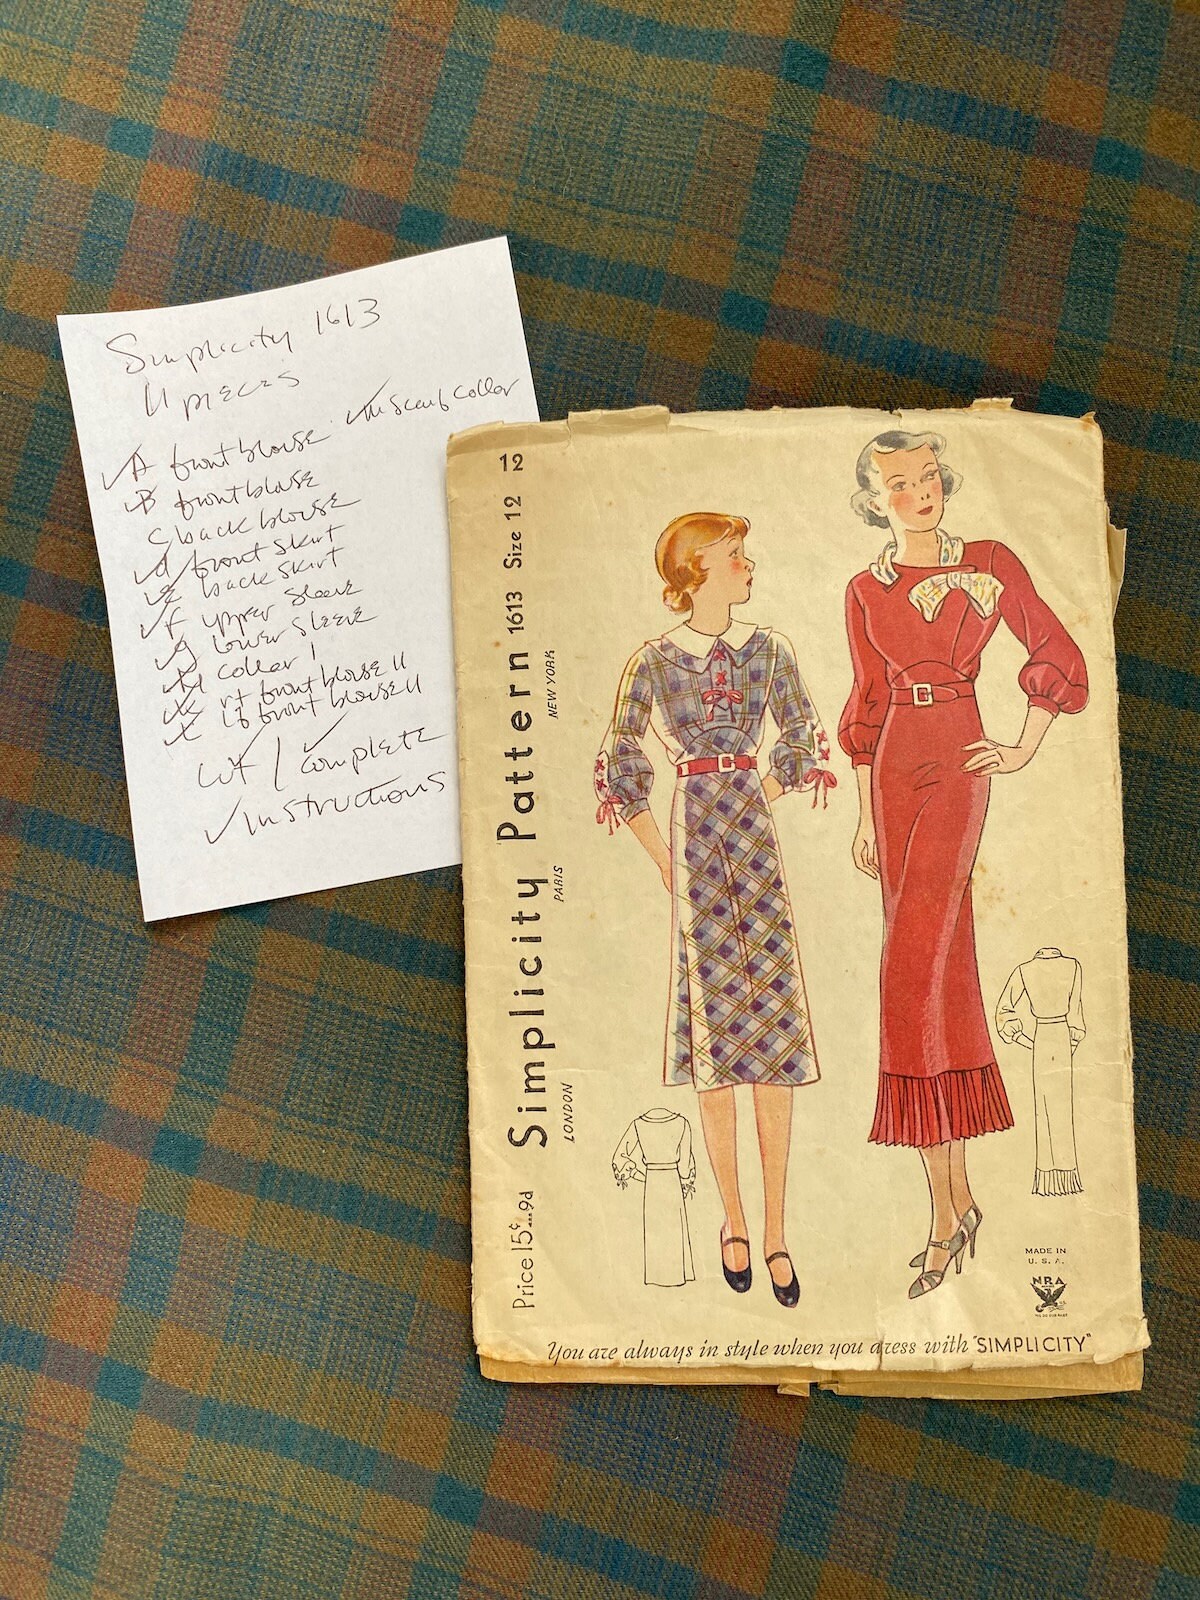 Simplicity 1613
11 pieces
✓A front blouse ✓M scarf collar
✓B front blouse
C back blouse
✓d front skirt
✓e back skirt
✓f upper sleeve
✓g lower sleeve
✓H collar I
✓k rt front blouse II
✓L lf front blouse II
cut / ✓complete
✓instructions
12
Simplicity Pattern 1613 Size 12
LONDON PARIS NEW YORK
Price 15¢...9d
MADE IN
U. S. A.
NRA
WE DO OUR PART
You are always in style when you dress with "SIMPLICITY"